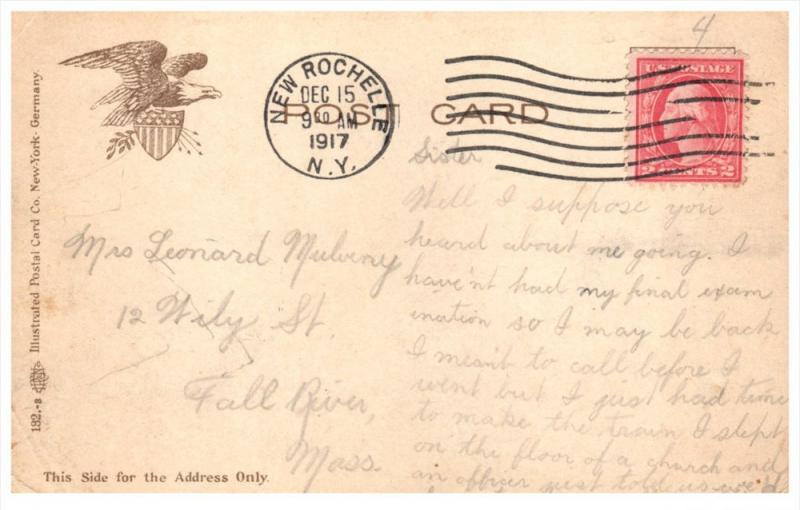 4
NEW ROCHELLE
DEC 15
9 30 AM
1917
N.Y.
POST CARD
U.S. POSTAGE
2 CENTS 2
Sister
Well I suppose you
heard about me going. I
haven't had my final exam
ination so I may be back
I meant to call before I
went but I just had time
to make the train I slept
on the floor of a church and
an officer just told us we'd
Mrs Leonard Mulveny
12 Wily St.
Fall River,
Mass.
This Side for the Address Only.
182.-B Illustrated Postal Card Co. New-York- Germany.